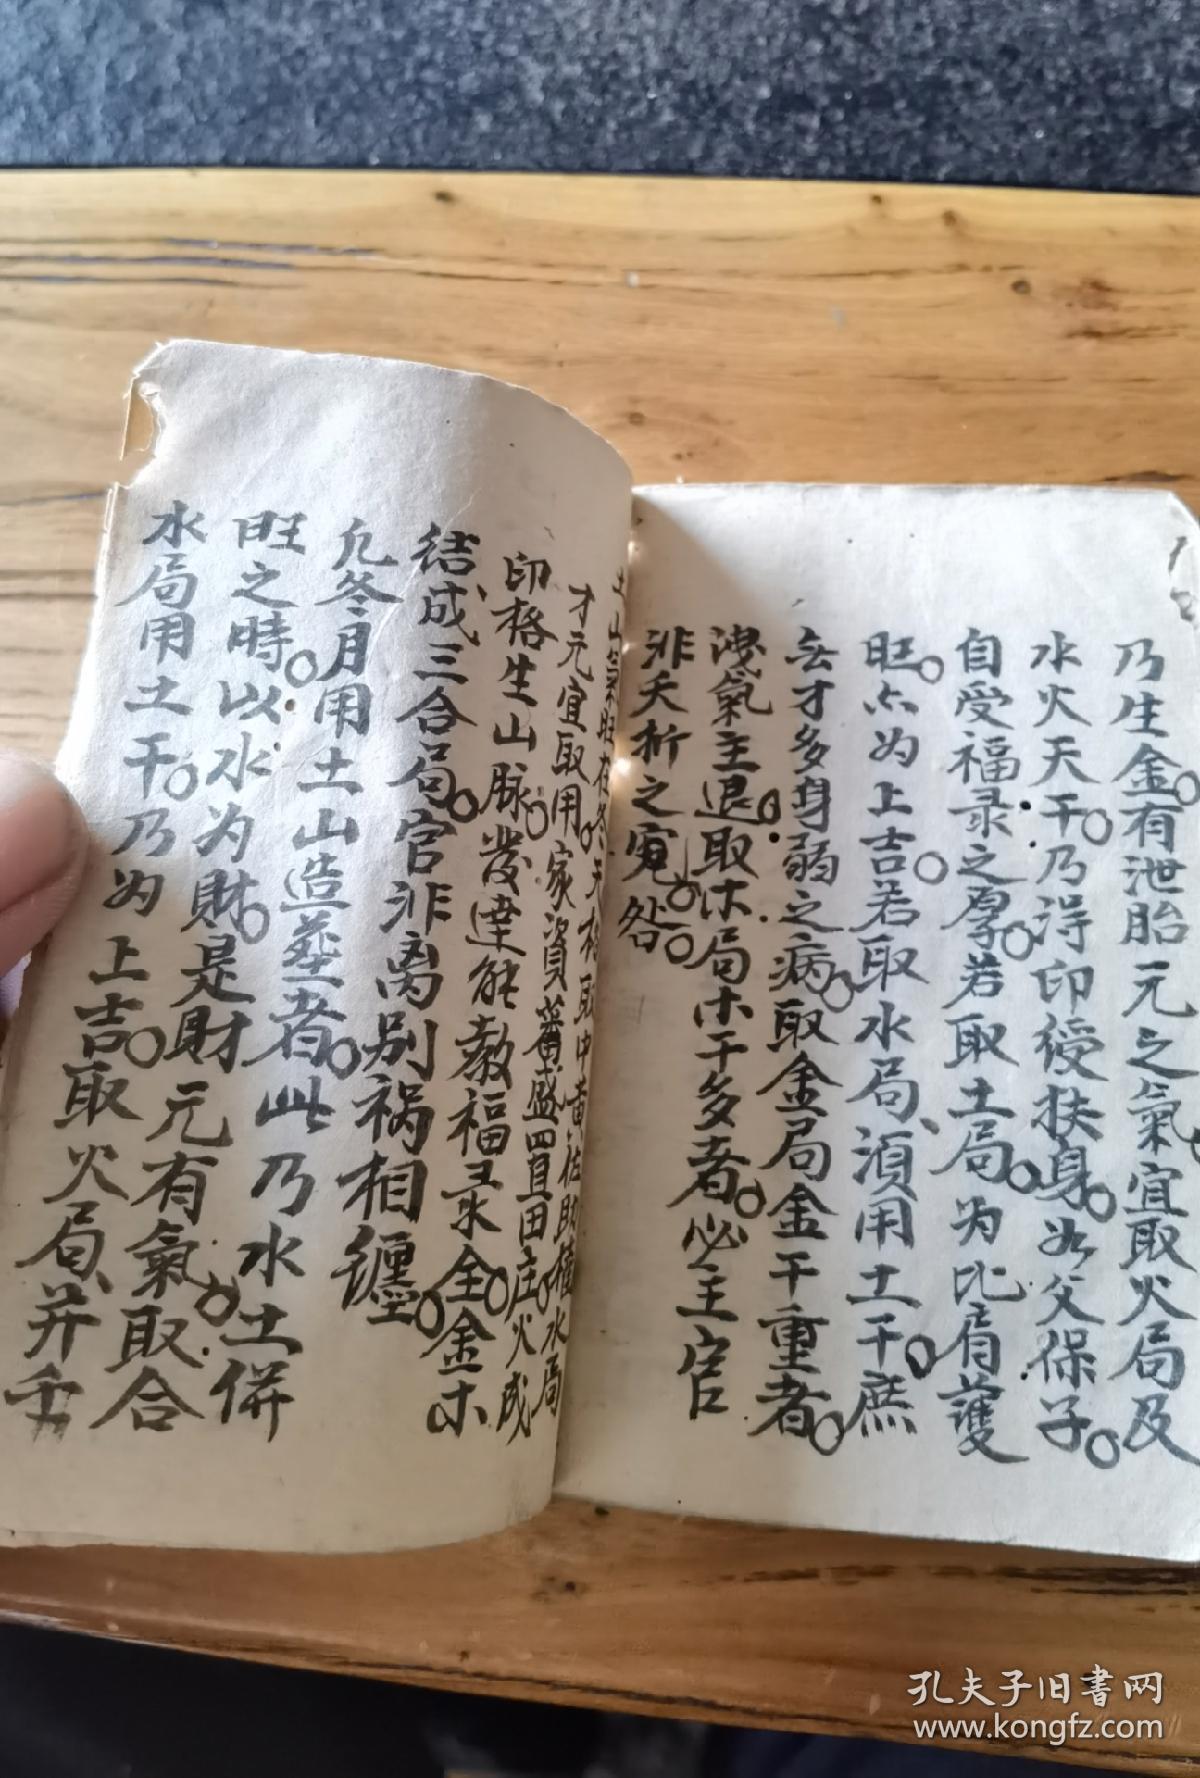 乃生金有泄胎元之氣宜取火局及
水火天干乃得印綬扶身如父保子
自受福录之厚若取土局为比肩護
旺亦为上吉若取水局須用土干庶
去才多身弱之病取金局金干重者
洩氣主退取木局木干多者必主官
非夭折之冤咎
土山
才元宜取用家資蕃盛四置田庄火成
印格生山脉發達能教福录全金木
结成三合局官非离别祸相纏
凡冬月用土山造塟者此乃水土併
旺之時以水为財是財元有氣取合
水局用土干乃为上吉取火局并壬
孔夫子旧書网
www.kongfz.com